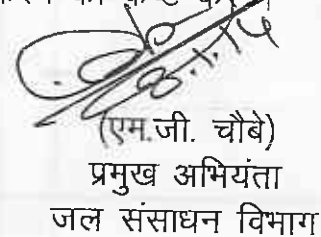 8.1.14
(एम.जी. चौबे)
प्रमुख अभियंता
जल संसाधन विभाग